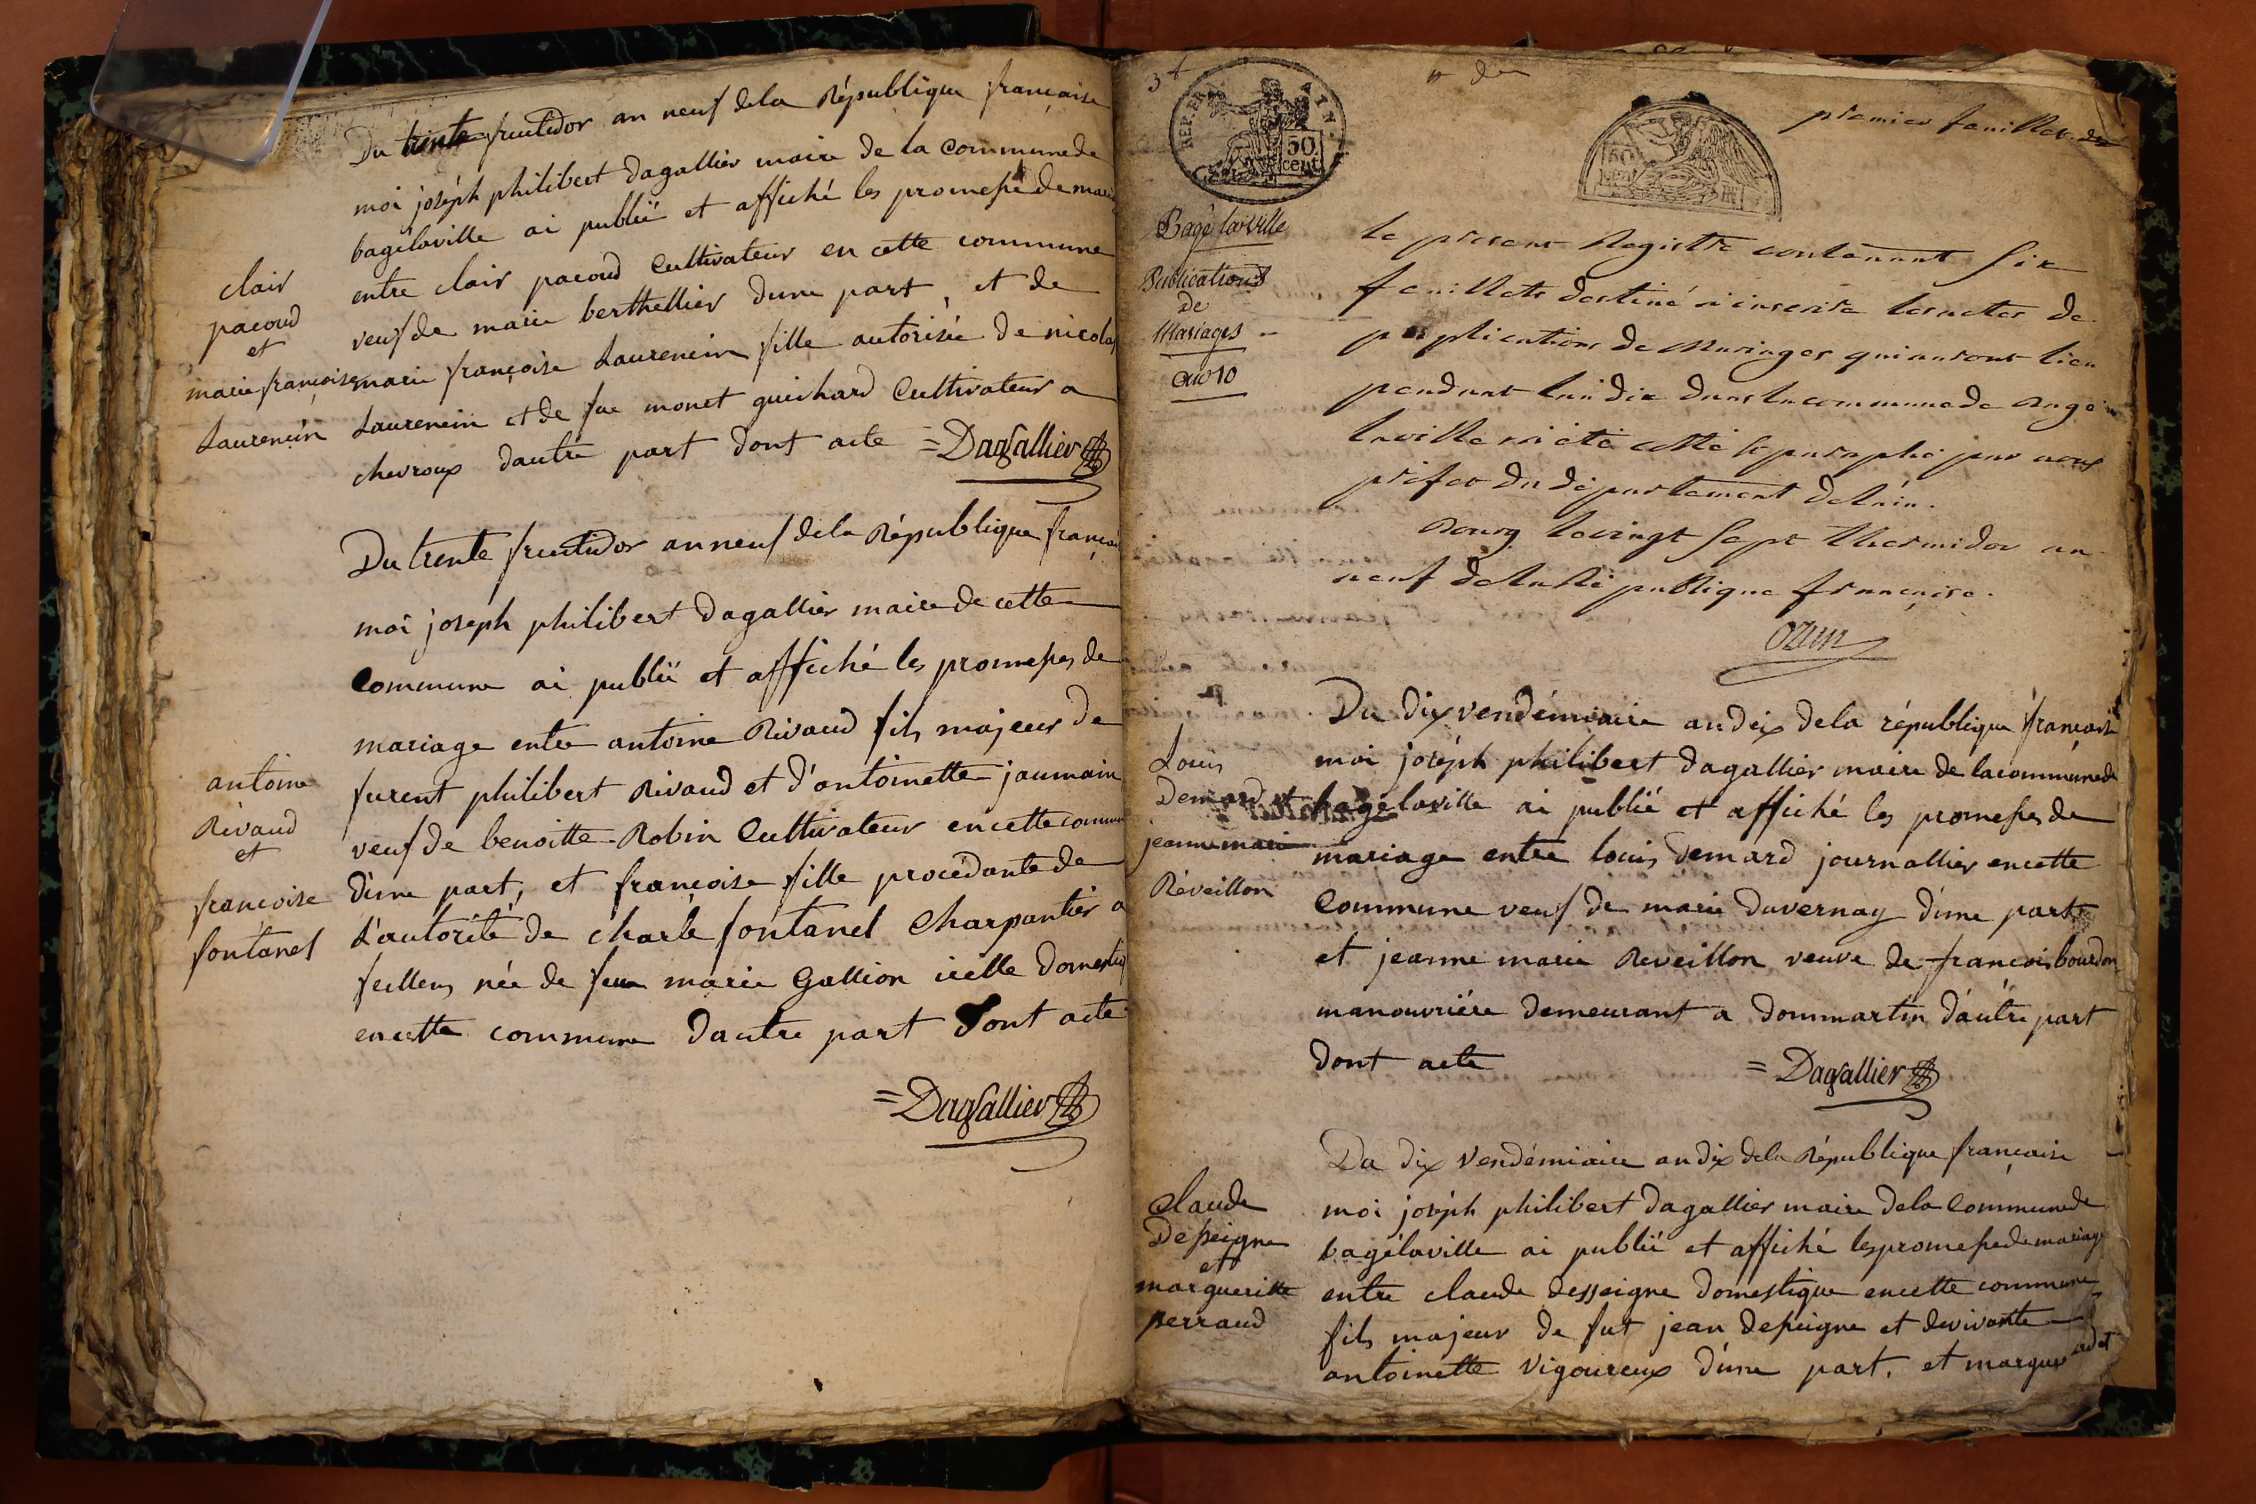 Du trente fructidor an neuf dela République française
moi joséph philibert Dagallier maire de la Commune de
bagélaville ai publié et affiché les promesse de
entre clair pacoud Cultivateur en cette commune
veuf de marie berthellier dune part, et de
marie françoise Laurencin fille autorisée de nicolas
Laurencin et de fue monet guichard Cultivateur a
chevroux dautre part dont acte = Dagallier
clair
pacoud
et
marie françoise
Laurencin
Du trente fructidor an neuf dela République
moi joseph philibert Dagallier maire de cette
Commune ai publié et affiché les promesses de
mariage entre antoine Rivaud fils majeur de
furent philibert Rivaud et d'antoinette jaumain
veuf de benoitte Robin Cultivateur en cette
d'une part, et françoise fille procédante de
L'autorité de charle fontanel Charpantier a
feillens née de feue marie Gallion icelle
en cette commune dautre part dont acte
= Dagallier
antoine
Rivaud
et
francoise
fontanel
premier feuillet
REP. FRA
50
cent
Bagé laville
Publications
de
Mariages
an 10
le present Registre contenant six
feuillets destiné à inscrire les actes de
publications de Mariages qui auront lieu
pendant l'an dix dans la commune de Bagé
laville a été cotté & paraphé par nous
préfet du département de l'ain.
Bourg le vingt sept thermidor an
neuf de la République française.
Ozun
Du dix vendémiaire an dix dela république française
moi joséph philibert Dagallier maire de la commune de
bagélaville ai publié et affiché les promesses de
mariage entre louis Demard journallier en cette
Commune veuf de marie Duvernay d'une part
et jeanne marie Reveillon veuve de francois bourdon
manouvriére demeurant a dommartin d'autre part
dont acte = Dagallier
Louis
Demard et
jeanne marie
Réveillon
Du dix vendémiaire an dix dela République française
moi joséph philibert Dagallier maire dela Commune de
bagélaville ai publié et affiché les promesse de mariage
entre claude desseigne domestique en cette commune
fils majeur de fut jean desseigne et de vivante
antoinette vigoureux d'une part, et
Claude
Desseigne
et
margueritte
perraud